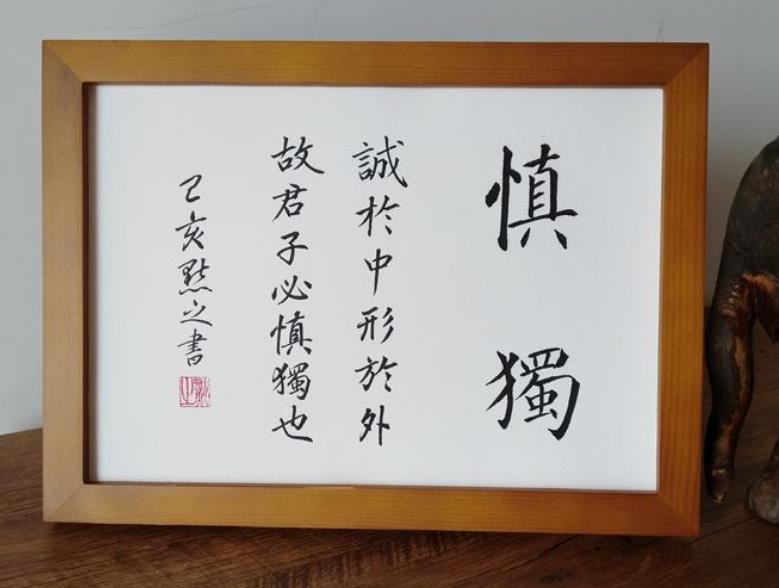 慎獨
誠於中形於外
故君子必慎獨也
己亥點之書